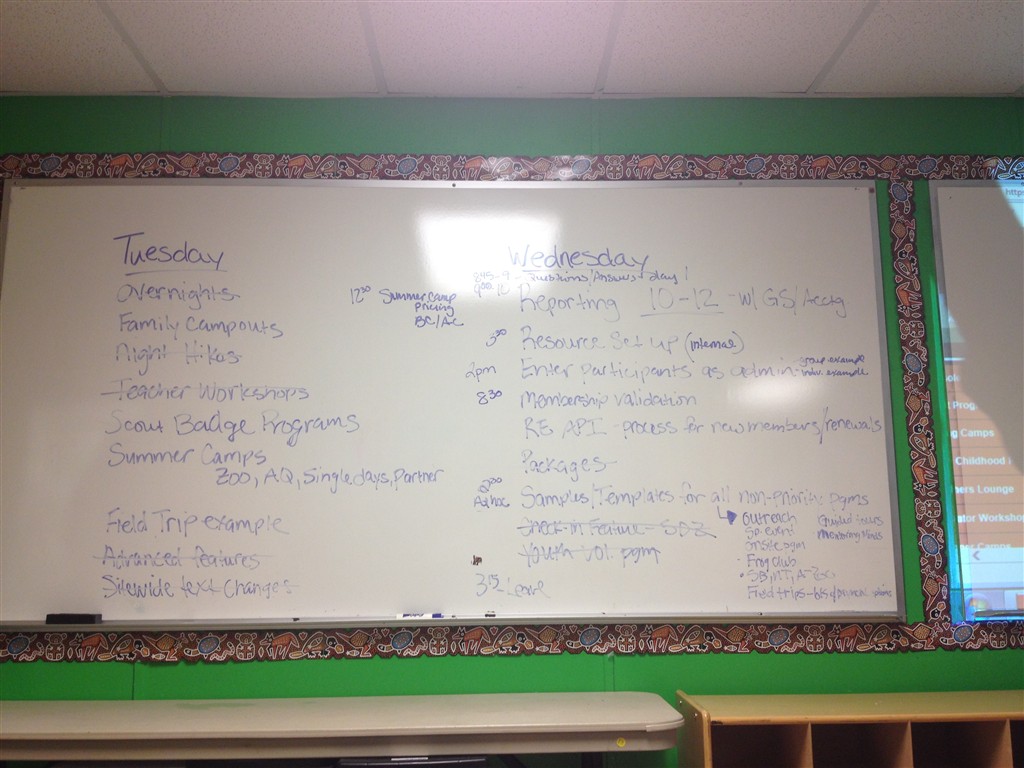 Tuesday
Overnights
Family Campouts
Night Hikes
Teacher Workshops
Scout Badge Programs
Summer Camps
ZOO, AQ, Single days, Partner
Field Trip example
Advanced features
Sitewide text Changes
12:30 Summer Camp
pricing
BC/AC
Wednesday
845-9 - Questions/Answers day 1
Reporting 10-12 - w/ GS/Acctg
3:30 Resource Set up (internal)
2pm Enter participants as admin - group example
indiv. example
8:30 Membership validation
RE API - process for new members/renewals
Packages
Ad hoc Samples/Templates for all non-priority pgms
Check-in Feature - SDZ
Youth Vol. pgm
3:15 Leave
Outreach
Sp. event
onsite pgm
- Frog club
Field trips
Guided tours
https
Prog
g Camps
Childhood
ners Lounge
ator Workshop